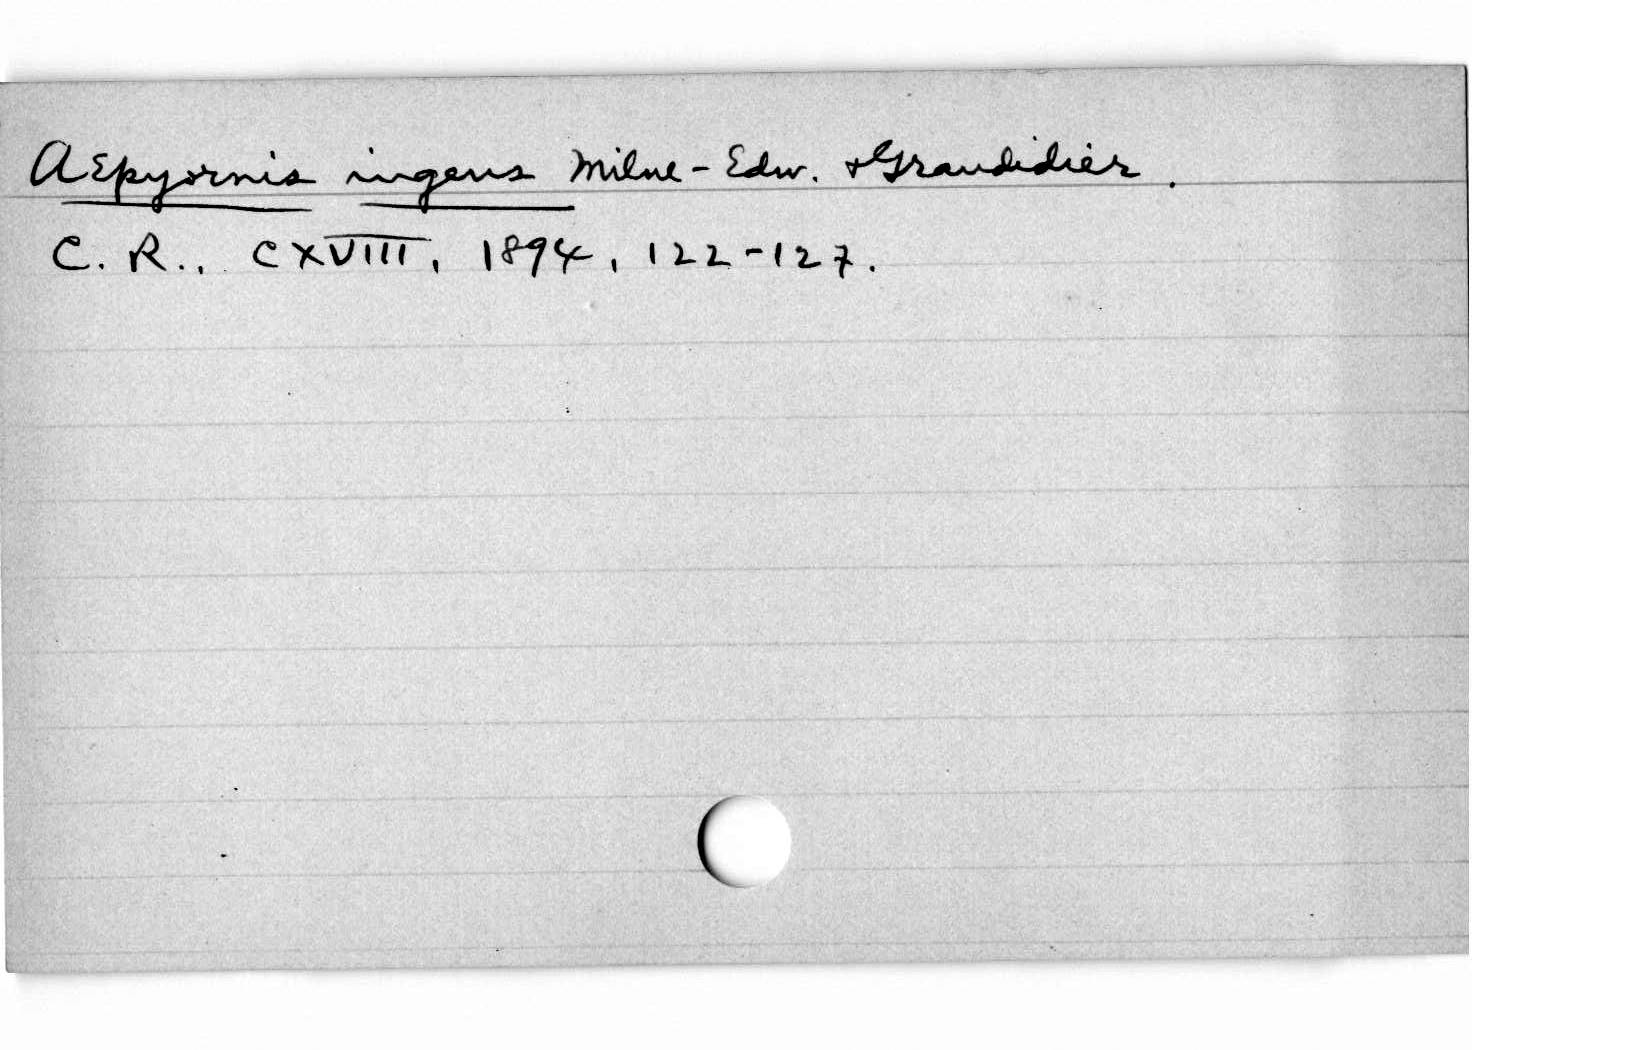 Aepyornis ingens Milne-Edw. & Grandidier.
C. R., CXVIII, 1894, 122-127.